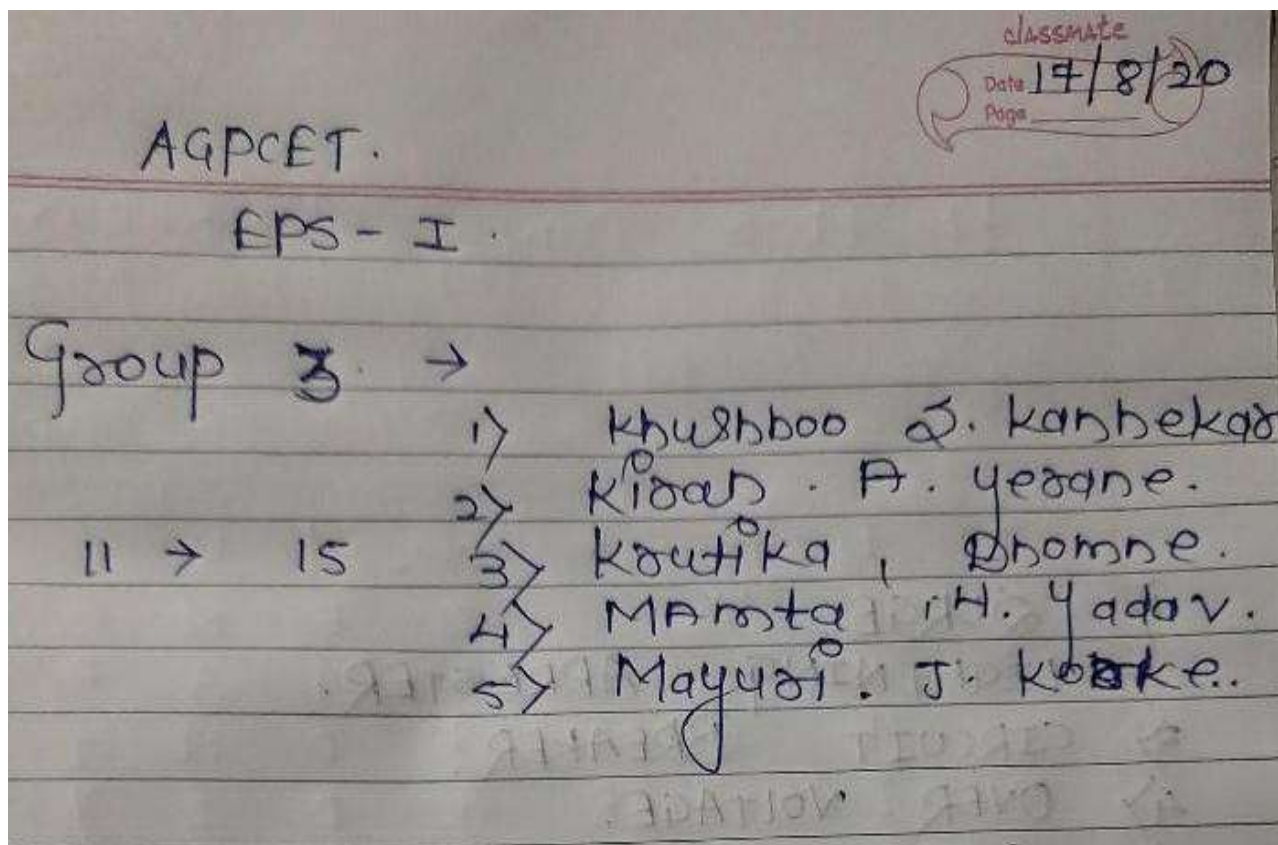 classmate
Date 17/8/20
Page
AGPCET.
EPS - I.
Group 3 →
1) Khushboo S. Kanhekar
2) Kiran. A. Yerane.
11 → 15 3) Krutika, Dhomne.
4) MAmta. H. Yadav.
5) Mayuri. J.
CIRCUIT
OVER VOLTAGE.